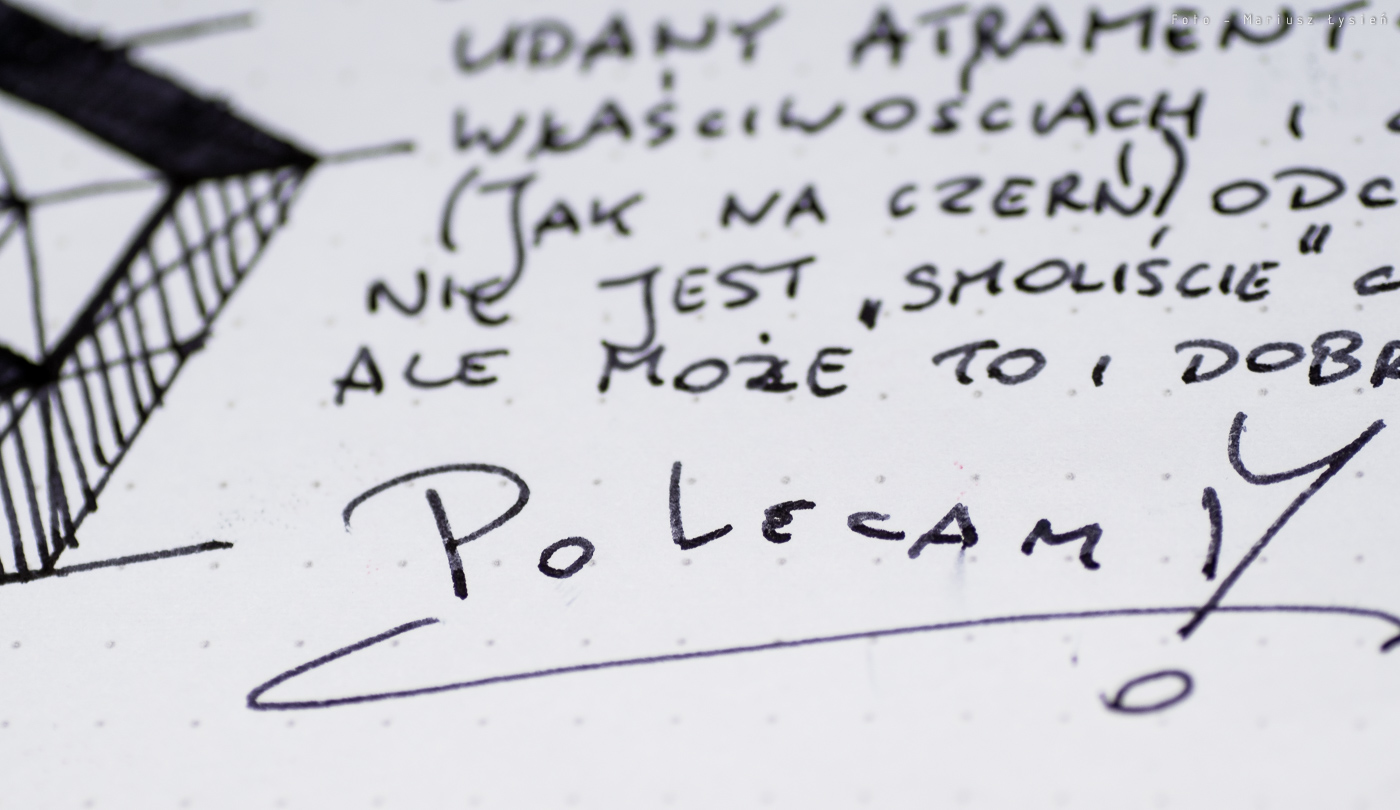 Foto - Mariusz Łysień
UDANY ATRAMENT
WŁAŚCIWOŚCIACH I
(JAK NA CZERŃ) ODC
NIE JEST „SMOLIŚCIE" C
ALE MOŻE TO I DOBR
POLECAM!